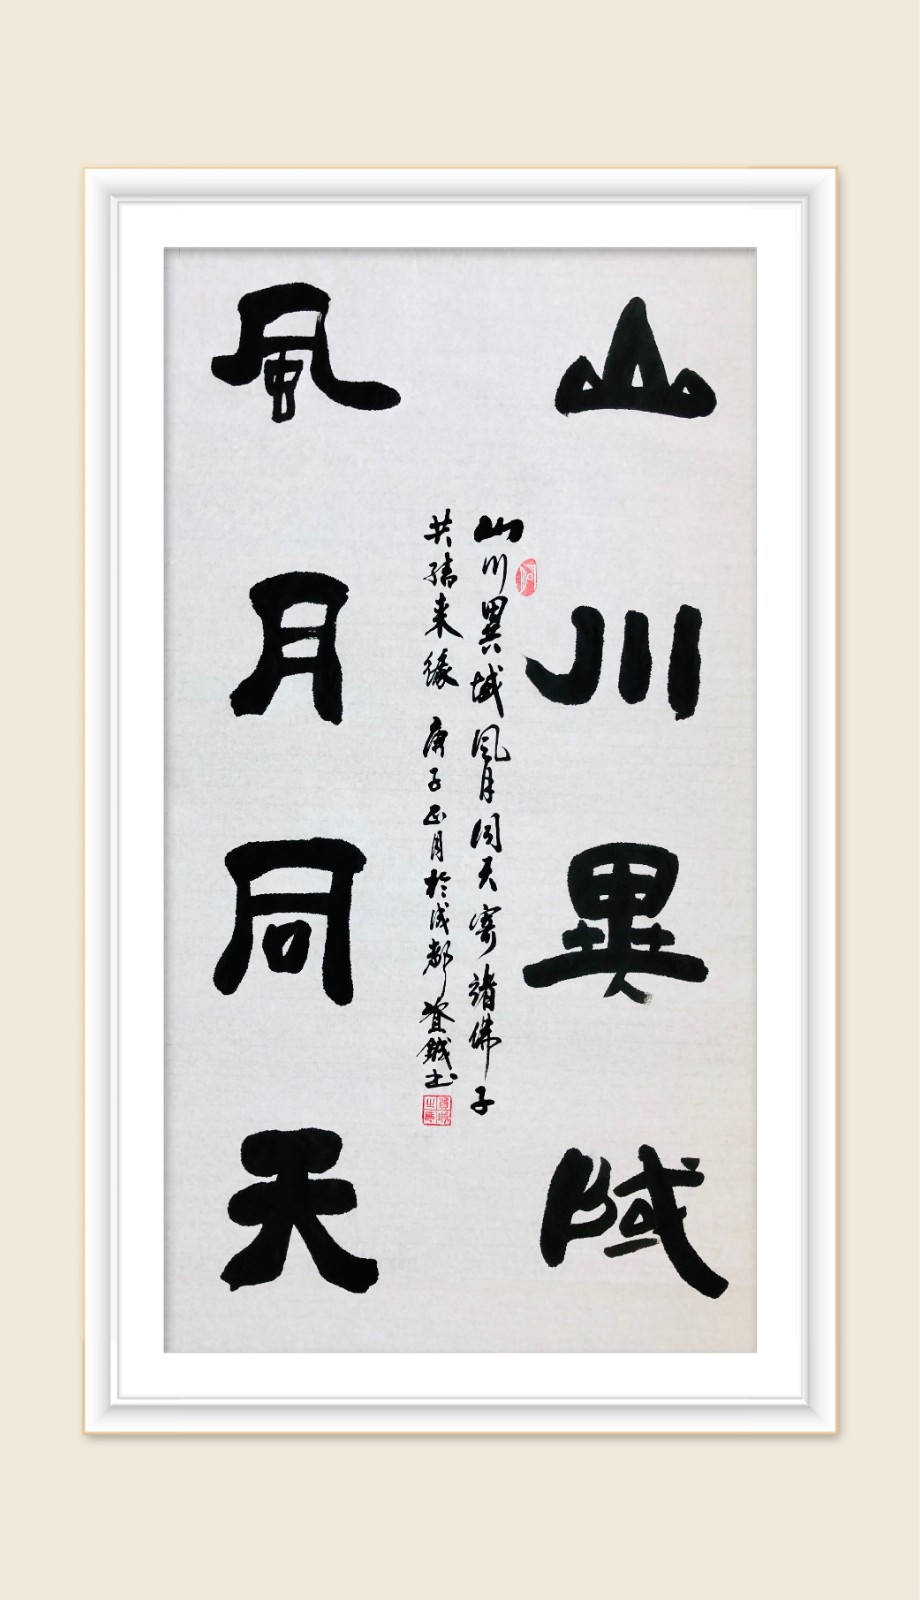 山川異域
風月同天
山川異域風月同天寄諸佛子
共結来緣 庚子正月於成都